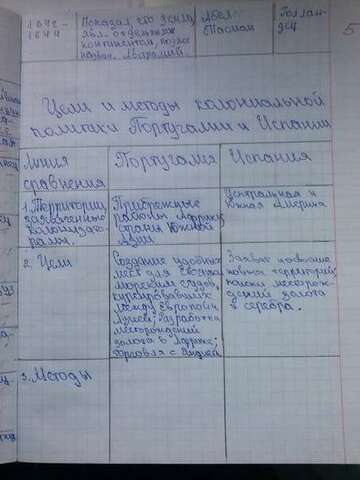 1642-
1644
Показал, что земли
явл. отдельным
континентом, позже
назван. Австралией.
Абел
Тасман
Голлан-
дец
5
Цели и методы колониальной
политики Португалии и Испании
Линия
сравнения
Португалия
Испания
1. Территории,
захваченные
колонизато-
рами.
Прибрежные
районы Африки,
страны Южной
Азии
Центральная и
Южная Америка
2. Цели
Создание удобных
мест для
морских судов,
курсировавших
между Европой и
Азией; разработка
месторождений
золота в Африке;
торговля с Индией
Захват
новых территорий,
поиски месторож-
дений золота
и серебра.
3. Методы